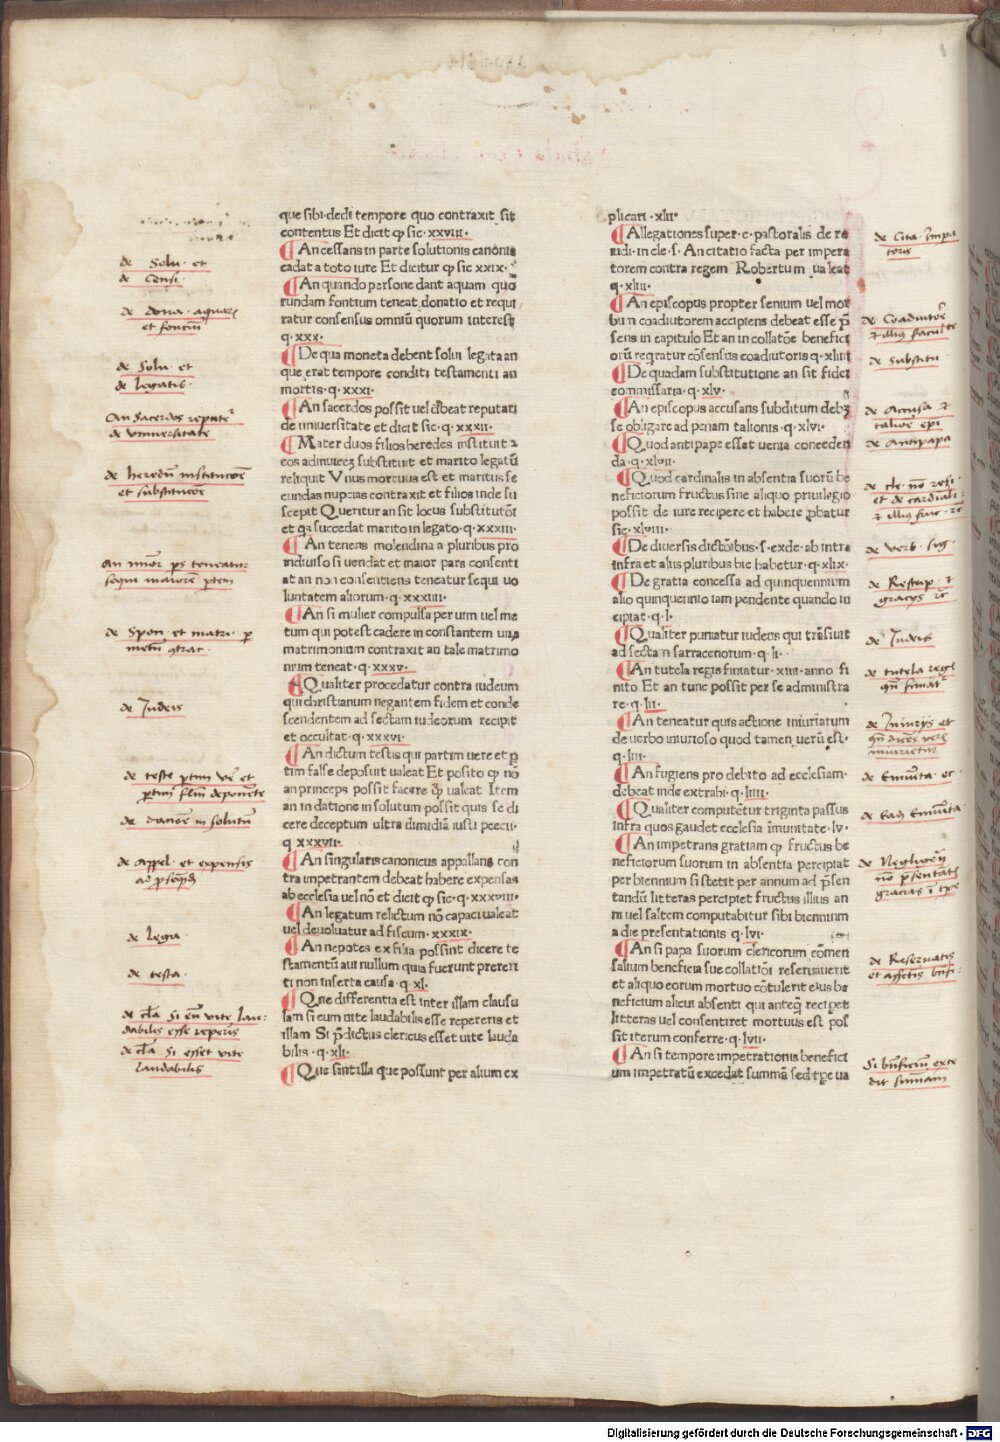 que sibi dedi tempore quo contraxit sit
contentus Et dicit ꝙ sic · xxviii ·
¶ An cessans in parte solutionis canonis
cadat a toto iure Et dicitur ꝙ sic xxix ·
¶ An quando persone dant aquam quo
rundam fontium teneat donatio et requi
ratur consensus omniū quorum interest
q · xxx ·
¶ De qua moneta debent solui legata an
que erat tempore conditi testamenti an
mortis · q · xxxi ·
¶ An sacerdos possit uel debeat reputari
de uniuersitate et dicit sic · q · xxxii ·
¶ Mater duos filios heredes instituit ⁊
eos adinuicez substituit et marito legatū
reliquit Vnus mortuus est et maritus se
cundas nupcias contraxit et filios inde su
scepit Queritur an sit locus substitutōi
et qs succedat marito in legato · q · xxxiii ·
¶ An tenens molendina a pluribus pro
indiuiso si uendat et maior pars consenti
at an non consentiens teneatur sequi uo
luntatem aliorum · q · xxxiiii ·
¶ An si mulier compulsa per uim uel me
tum qui potest cadere in constantem uirū
matrimonium contraxit an tale matrimo
nium teneat · q · xxxv ·
¶ Qualiter procedatur contra iudeum
qui christianum negantem fidem et conde
scendentem ad sectam iudeorum recipit
et occultat · q · xxxvi ·
¶ An dictum testis qui partim uere et ꝑ
tim false deposuit ualeat Et posito ꝙ nō
an princeps possit facere ꝙ ualeat Item
an in datione in solutum possit quis se di
cere deceptum ultra dimidiā iusti precii ·
q xxxvii ·
¶ An singularis canonicus appellans con
tra impetrantem debeat habere expensas
ab ecclesia uel nō et dicit ꝙ sic · q · xxxviii ·
¶ An legatum relictum nō capaci ualeat
uel deuoluatur ad fiscum · xxxix ·
¶ An nepotes ex filia possint dicere te
stamentū aui nullum quia fuerunt preteri
ti non inserta causa · q · xl ·
¶ Que differentia est inter illam clausu
lam si eum uite laudabilis esse repereris et
illam Si p̄dictus clericus esset uite lauda
bilis · q · xli ·
¶ Que sint illa que possunt per alium ex
plicari · xlii ·
¶ Allegationes super · c · pastoralis de re
iudi · in cle · s · An citatio facta per impera
torem contra regem Robertum ualeat
q · xliii ·
¶ An episcopus propter senium uel mor
bum coadiutorem accipiens debeat esse p̄
sens in capitulo Et an in collatōe benefici
orū reqratur cōsensus coadiutoris q · xliiii
¶ De quadam substitutione an sit fidei
commissaria · q · xlv ·
¶ An episcopus accusans subditum debz
se obligare ad penam talionis · q · xlvi ·
¶ Quod antipape esset uenia conceden
da · q · xlvii ·
¶ Quod cardinalis in absentia suorū be
neficiorum fructus sine aliquo priuilegio
possit de iure recipere et habere ꝓbatur
sic · xlviii ·
¶ De diuersis dictōibus · s · exde · ab intra
infra et aliis pluribus hic habetur · q · xlix ·
¶ De gratia concessa ad quinquennium
alio quinquennio iam pendente quando in
cipiat · q · l ·
¶ Qualiter puniatur iudeus qui trāsiuit
ad sectam sarracenorum · q · li ·
¶ An tutela regis finiatur · xiiii · anno fi
nito Et an tunc possit per se administra
re · q · lii ·
¶ An teneatur quis actione iniuriarum
de uerbo iniurioso quod tamen uerū est ·
q · liii ·
¶ An fugiens pro debito ad ecclesiam ·
debeat inde extrahi · q · liiii ·
¶ Qualiter computētur triginta passus
infra quos gaudet ecclesia īmunitate · lv ·
¶ An impetrans gratiam ꝙ fructus be
neficiorum suorum in absentia percipiat
per biennium si stetit per annum ad p̄sen
tandū litteras percipiet fructus illius an
ni uel saltem computabitur sibi biennium
a die presentationis q · lvi ·
¶ An si papa suorum clericorum cōmen
salium beneficia sue collatiōi reseruauerit
et aliquo eorum mortuo cōtulerit eius be
neficium alicui absenti qui anteq̄ recipet
litteras uel consentiret mortuus est pos
sit iterum conferre · q · lvii ·
¶ An si tempore impetrationis benefici
um impetratū excedat summā sed tp̄e ua
de Solu · et
de Censi
de dona · aquarꝫ
et fonciū
de Solu · et
de legatis ·
An sacerdos repute͛
de vniuersitate
de heredū institucōe
et substitucōe
An mīor ps teneatur
sequi maiorē ptem
de Spon · et matri · ꝑ
metū ꝯtrac ·
de Iudeis
de teste ꝑtim ve͛ et
ꝑtim flm̄ deponēte
de dacōne in solutū
de appel · et expensis
de lega ·
de testa ·
de cl̄a Si eū vite lau-
dabilis esse reperis
de cl̄a Si esset vite
laudabilis
de Cita · Impa
toris
de Coadiutoē
de Substitu
de Accusa ⁊
talioē epi
de Antipapa
et de cardinali ·
de Verb · sig ·
de Rescrip · ⁊
gracijs ⁊c
de Iudeis
de tutela regꝭ
qn̄ finiat͛
de Iniurijs et
de Emūita · ec ·
de Ead Emūita
de Negligen
nō p̄sentatꝭ
de Reseruatis
et affectis bn̄fi ·
Si bn̄ficiū exce
dit summam
Digitalisierung gefördert durch die Deutsche Forschungsgemeinschaft - DFG